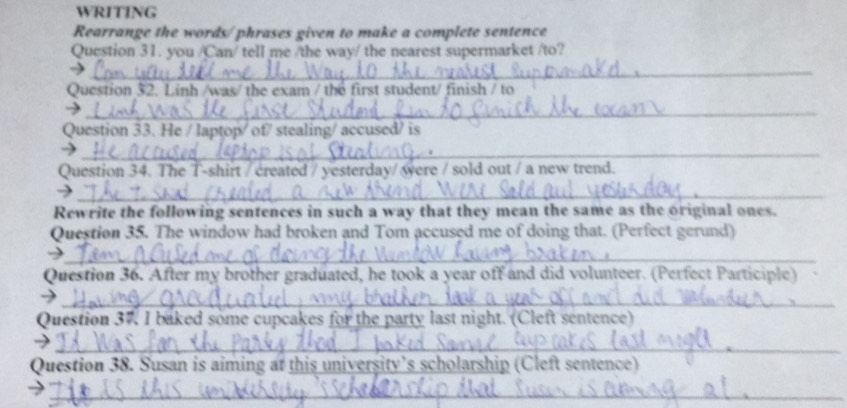 WRITING
Rearrange the words/ phrases given to make a complete sentence
Question 31. you /Can/ tell me /the way/ the nearest supermarket /to?
→ Can you tell me the way to the nearest supermakd.
Question 32. Linh /was/ the exam / the first student/ finish / to
→ Linh was the first student to finish the exam
Question 33. He / laptop/ of/ stealing/ accused/ is
→ He accused laptop is of stealing.
Question 34. The T-shirt / created / yesterday/ were / sold out / a new trend.
→ The T-shat created a new trend were sold out yesterday.
Rewrite the following sentences in such a way that they mean the same as the original ones.
Question 35. The window had broken and Tom accused me of doing that. (Perfect gerund)
→ Tom acused me of doing the window having broken.
Question 36. After my brother graduated, he took a year off and did volunteer. (Perfect Participle)
→ Having graduated, my brother took a year off and did volunteer.
Question 37. I baked some cupcakes for the party last night. (Cleft sentence)
→ It was for the party that I baked some cupcakes last night.
Question 38. Susan is aiming at this university's scholarship (Cleft sentence)
→ It is this university's scholarship that Susan is aiming at.